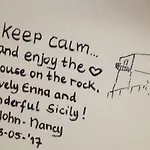 KEEP CALM...
and enjoy the ♡
ouse on the rock,
vely Enna and
nderful Sicily!
John - Nancy
3-05-'17